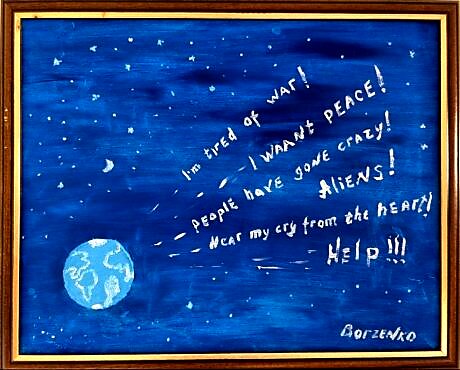 I'm tired of war!
I WAANT PEACE!
PEOPLE HAVE GONE CRAZY!
ALIENS!
Hear my cry from the HEART!
HELP!!!
BORZENKO